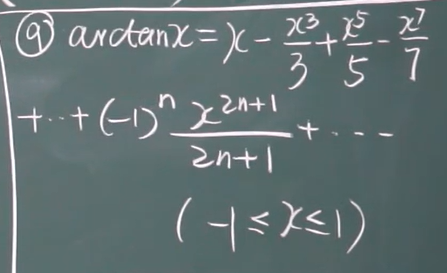 ⑨ arctanx = x - x³/3 + x⁵/5 - x⁷/7
+ ·· + (-1)ⁿ x²ⁿ⁺¹/2n+1 + ····
(-1 ≤ x ≤ 1)